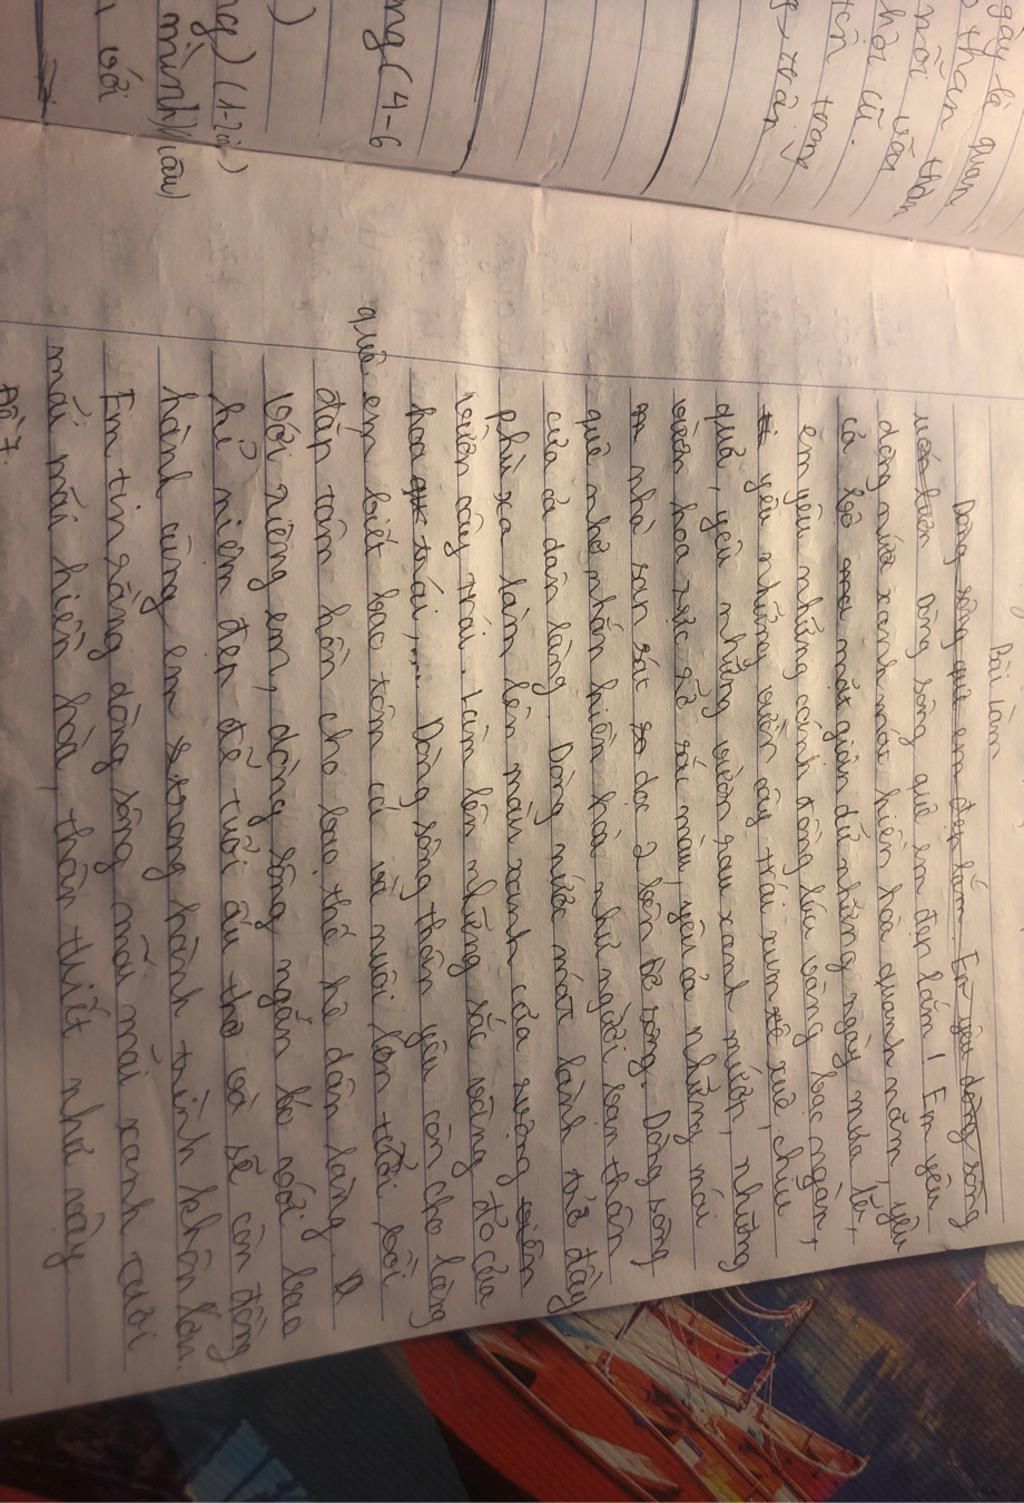 gày lễ quan
thần thần
mỗi vần
hồi cũ.
tên trong
g, trân
ng (4-6
)
ng) (1-2 câu)
mình) (câu)
với
Bài làm
Dòng sông quê em đẹp lắm. Em yêu dòng sông
luôn Dòng sông quê em đẹp lắm! Em yêu
dòng nước xanh mát hiền hòa quanh năm, yêu
cả bộ mặt giận dữ những ngày mưa lũ,
em yêu những cánh đồng lúa vàng bạc ngàn,
yêu những vườn cây trái xum xuê, chịu
quả, yêu những vườn rau xanh mướt, những
vườn hoa rực rỡ sắc màu, yêu cả những mái
nhà san sát dọc 2 bên bờ sông. Dòng sông
quê nhỏ nhắn hiền hòa như người bạn thân
của cả dân làng. Dòng nước mát lành trở đầy
phù xa làm lên màu xanh của ruộng viên
vườn cây trái. Làm lên những sắc vàng, đỏ của
hoa trái,... Dòng sông thân yêu còn cho làng
quê em biết bao tôm cá và nuôi lớn, bồi
đắp tâm hồn cho bao thế hệ dân làng.
Với riêng em, dòng sông ngắn bó với bao
kỉ niệm đẹp đẽ tuổi ấu thơ và sẽ còn đồng
hành cùng em trong hành trình khôn lớn.
Em tin rằng dòng sông mãi mãi xanh tươi
mãi mãi hiền hòa, thân thiết như vậy
Đề 7.